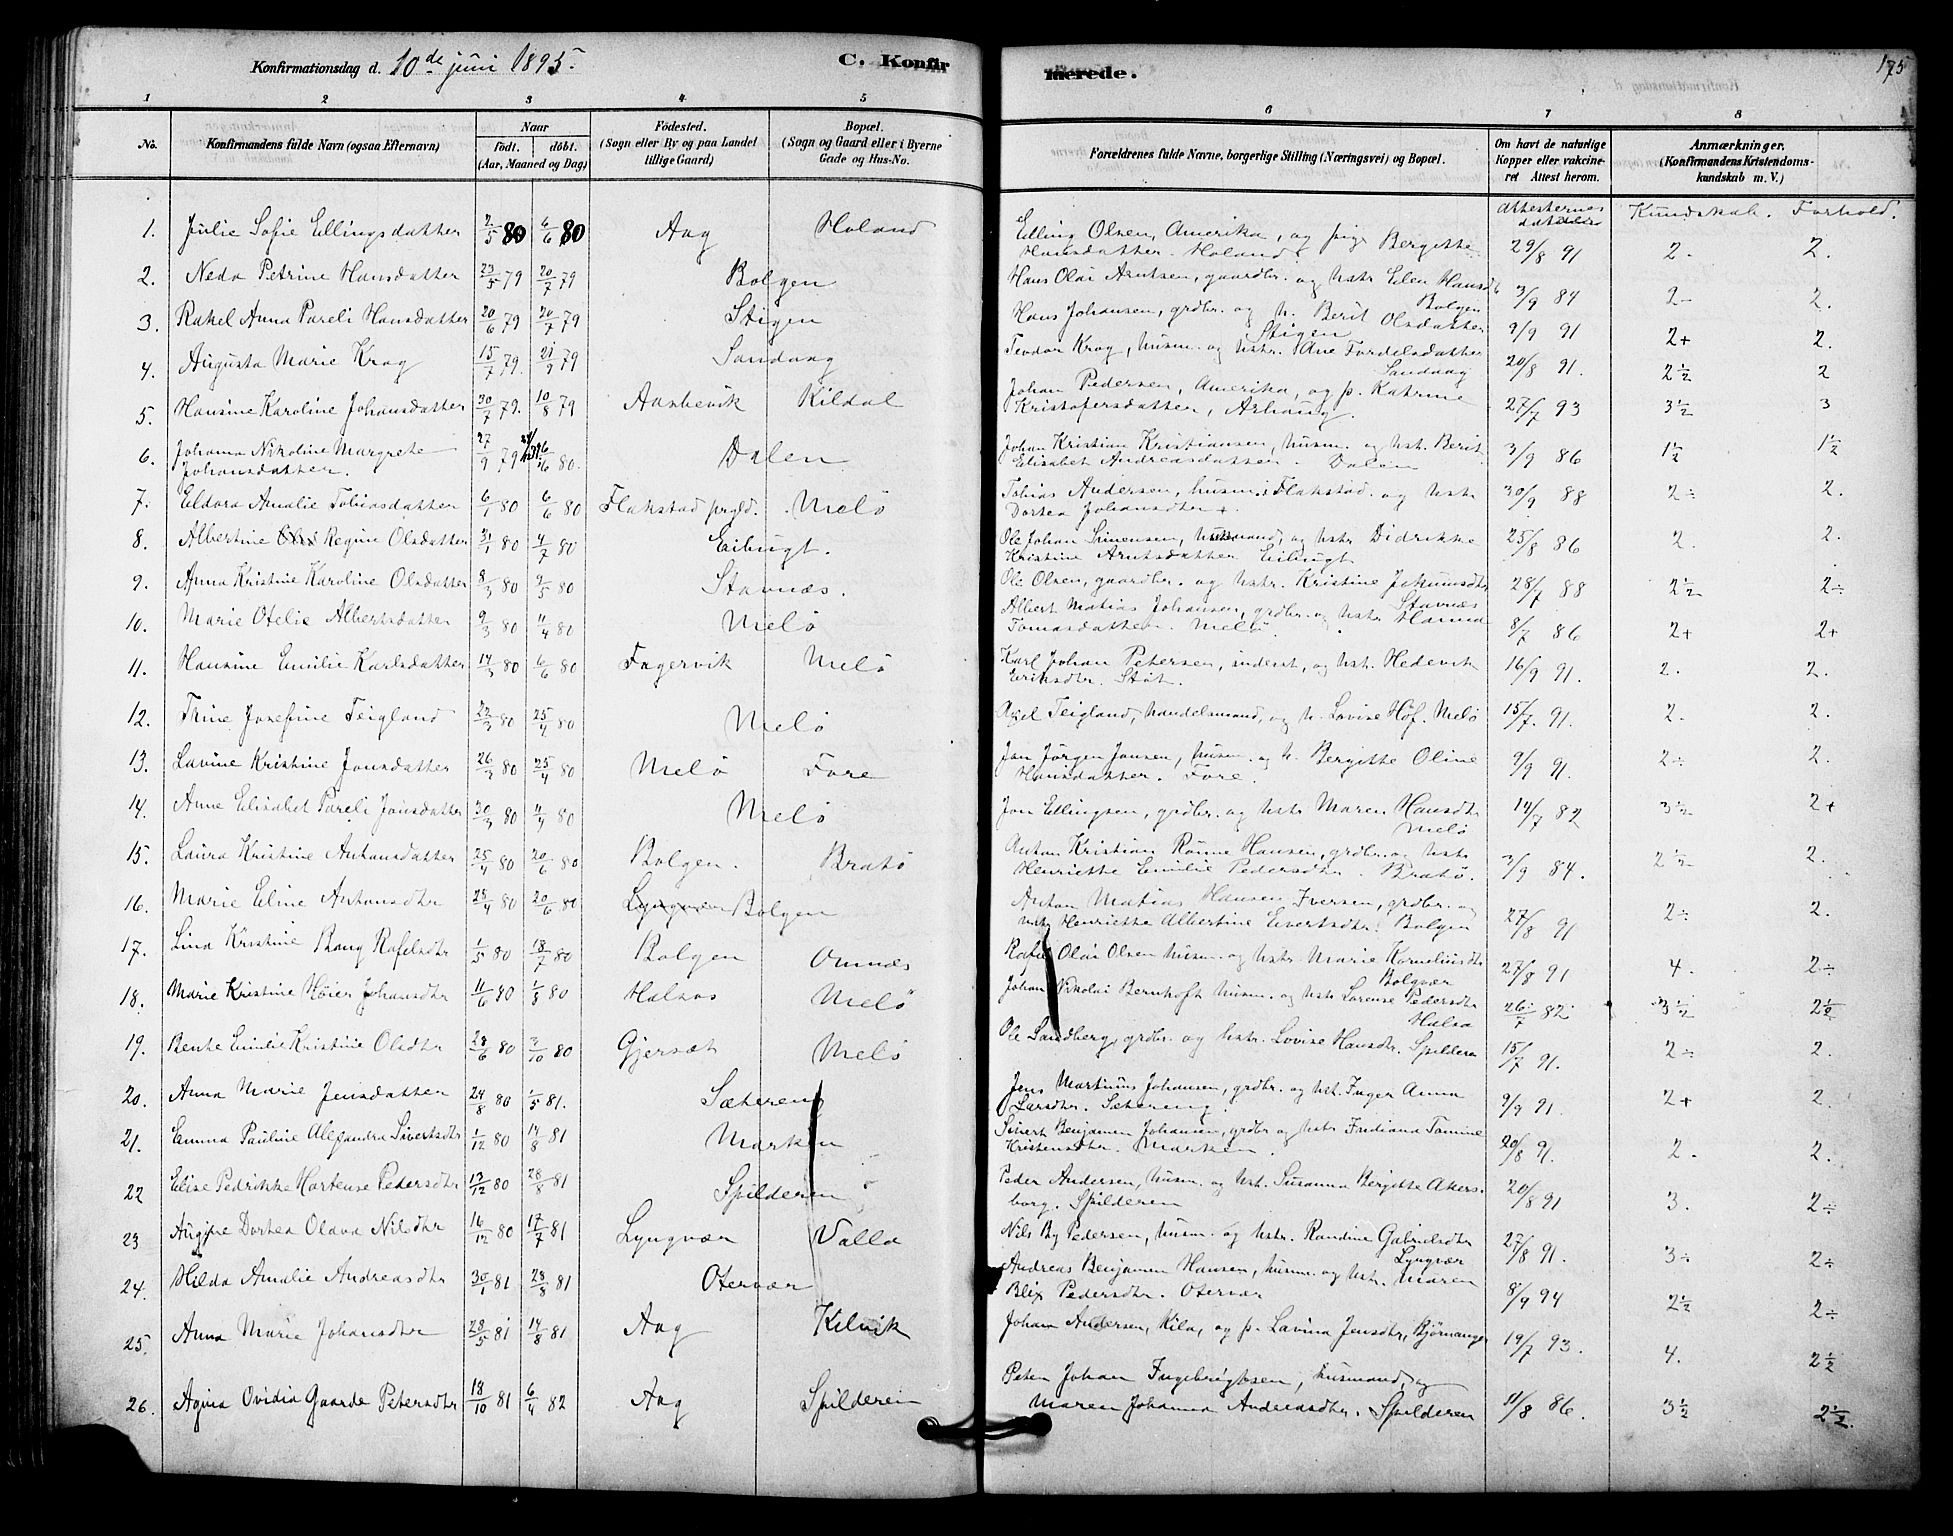 Konfirmationsdag d. 10de juni 1895.
C. Konfirmerede.
175
1 2 3 4 5 6 7 8
No.
Konfirmandens fulde Navn (ogsaa Efternavn)
Naar
født. døbt.
(Aar, Maaned og Dag)
Fødested.
(Sogn eller By og paa Landet
tillige Gaard)
Bopæl.
(Sogn og Gaard eller i Byerne
Gade og Hus-No.
Forældrenes fulde Navne, borgerlige Stilling (Næringsvei) og Bopæl.
Om havt de naturlige
Kopper eller vakcine-
ret Attest herom.
Anmærkninger.
(Konfirmandens Kristendoms-
kundskab m. V.)
Attesternes
Kundskab. Forhold.
1. Julie Sofie Ellingsdatter 2/5 80 6/6 80 Aag Holand Elling Olsen, Amerika, og pige Bergitte
Hansdatter. Holand. 29/8 91 2. 2.
2. Neda Petrine Hansdatter 23/5 79 20/7 79 Bolgen Hans Olai Arntsen, gaardbr. og hstr Elen Hansd.
Bolgen 3/9 84 2- 2.
3. Rakel Anna Pareli Hansdatter 20/6 79 20/7 79 Stigen Hans Johansen, grdbr. og h. Berit Olsdatter
Stigen 9/9 91 2+ 2.
4. Augusta Marie Krog 15/7 79. 21/9 79 Sandvag Teodor Krog, husm. og hstr. Ane Tordelsdatter
Sandvag 20/8 91. 2½ 2
5. Hansine Karoline Johansdatter 30/7 79. 10/8 79 Aasbevik Kildal Johan Pedersen, Amerika, og p. Katrine
Kristofersdatter, Ashaug. 27/7 93 3½ 3
6. Johanna Nikoline Margrete
Johansdatter. 27/9 79 6/6 80. Dalen Johan Kristian Kristiansen, husm. og hst. Berit
Elisabet Andreasdatter. Dalen 3/9 86 1½ 1½
7. Eldora Amalie Tobiasdatter 6/1 80 6/6 80 Flakstad prgld. Melö Tobias Andersen, husm. i Flakstad og hstr
Dortea Johansdtr +. 30/9 88 2÷ 2.
8. Albertine Regine Olsdatter 31/1 80 4/7 80 Eibugt. Ole Johan Simensen, husmand, og hstr Didrikke
Kristine Arntsdatter Eibugt 25/8 86 2. 2.
9. Anna Kristine Karoline Olsdatter 8/3 80 9/5 80 Stavnæs. Ole Olsen, gaardbr. og hstr. Kristine Jokumsdtr
Stavnæs 28/7 88 2½ 2÷
10. Marie Otelie Albertsdatter 9/3 80 4/4 80 Melö Albert Matias Johansen, grdbr. og hstr Hanna
Tomasdatter. Melö. 8/7 86 2+ 2+
11. Hansine Emilie Karlsdatter 14/3 80 6/6 80 Fagervik Melö Karl Johan Petersen, inderst, og hst. Hedevik
Eriksdtr. Stöt. 16/9 91. 2. 2.
12. Trine Josefine Teigland 22/3 80 25/4 80 Melö Axel Teigland, handelsmand, og h. Lovise Hof. Melö 15/7. 91. 2. 2.
13. Lavine Kristine Jonsdatter 26/3 80 25/4 80 Melö Fore Jon Jörgen Jonsen, husm. og h. Bergitte Oline
Hansdatter. Fore. 9/9 91. 2÷ 2.
14. Anne Elisabet Pareli Jonsdatter 30/3 80 4/4 80 Melö Jon Ellingsen, grdbr. og hstr Maren Hansdtr
Melö 14/7 82 3½ 2+
15. Laura Kristine Antonsdatter 25/4 80 20/6 80 Bolgen. Bratö Anton Kristian Rönne Hansen, grdbr. og hstr
Henriette Emilie Pedersdtr. Bratö. 3/9 84. 2½ 2.
16. Marie Eline Antonsdtr 28/4 80 20/6 80 Lyngvær Bolgen Anton Matias Hansen Iversen, grdbr. og
hstr Henriette Albertine Evertsdtr. Bolgen 27/8 91 2÷ 2.
17. Lina Kristine Bang Rafelsdtr 1/5 80 18/7 80 Bolgen Omnæs Rafel Olai Olsen husm. og hstr Marie Korneliusdtr
Bolgvær 27/8 91 4. 2÷
18. Marie Kristine Höier Johansdtr 11/6 80 1/8 80 Halsos Melö Johan Nikolai Bernhoft husm. og hstr Lorense Pedersdtr
Halsa 26/7 82. 3½ 2½
19. Bente Emilie Kristine Olsdtr 28/6 80 3/10 80 Gjersæt Melö Ole Sandberg, grdbr. og hstr. Lovise Hansdtr. Spildern 15/7 91. 2÷ 2.
20. Anna Marie Jensdatter 24/8 80 1/5 81. Sætereng Jens Martinus Johansen, grdbr. og hst. Inger Anna
Larsdtr. Sætereng. 9/9 91. 2+ 2.
21. Emma Pauline Alexandra Sivertsdtr 1/12 80 14/8 81 Marken Sivert Benjamin Johansen, grdbr og hstr Frediana Tomine
Kristensdtr. Marken. 20/8 91. 2. 2.
22 Elise Pedrikke Hartense Pedersdtr 13/12 80 28/8 81 Spilderen Peder Andersen, husm. og hst. Susanna Bergitte Akers-
borg. Spilderen 20/8 91 3. 2÷
23 Dortea Olava Nilsdtr 16/12 80 17/7 81 Lyngvær Valla Nils By Pedersen, husm. og hstr. Randine Gabrielsdtr
Lyngvær 27/8 91. 3÷ 2÷
24. Hilda Amalie Andreasdtr 30/1 81 28/8 81 Otervær Andreas Benjamin Hansen, husm. og hstr. Maren
Blix Pedersdtr. Otervær 8/9 94 2½ 2÷
25. Anna Marie Johansdtr 28/5 81 14/8 81 Aag Kilvik Johan Andersen, Kila, og p. Lavina Jensdtr, Bjørnanger 19/7 93. 4. 2½
26. Agina Ovidia Gaarde Petersdtr 18/10 81 6/4 82 Aag Spilderen Peter Johan Ingebrigtsen, husmand, og
Maren Johanna Andreasdtr. Spilderen 11/8 86. 3½ 2½.